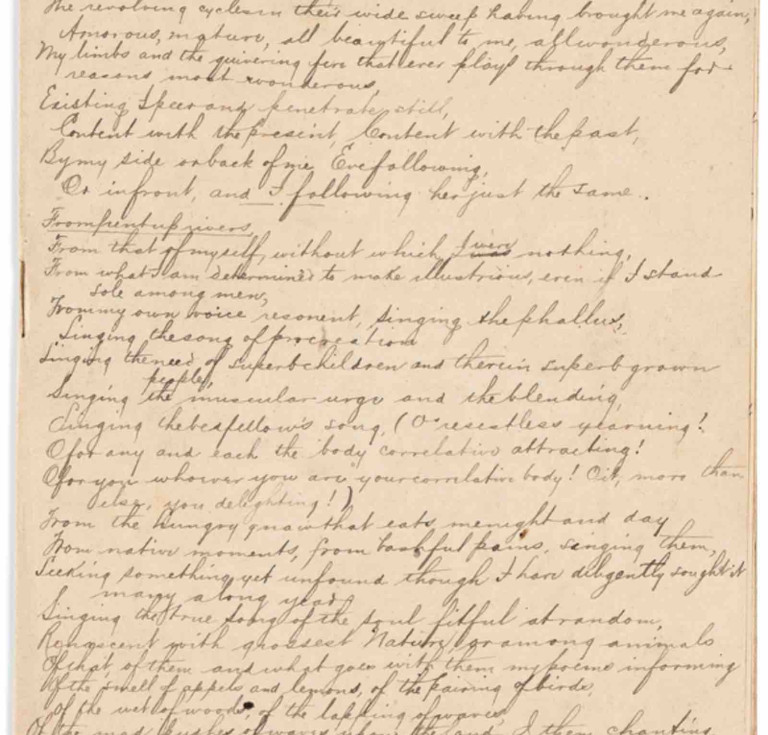 The revolving cycles in their wide sweep having brought me again,
Amorous, mature, all beautiful to me, all wonderous,
My limbs and the quivering fire that ever plays through them for
reasons most wonderous,
Existing I peer and penetrate still,
Content with the present, Content with the past,
By my side or back of me Eve following,
Or in front, and I following her just the same.
From pent up rivers
From that of myself, without which I were nothing,
From what I am determined to make illustrious, even if I stand
sole among men,
From my own voice resonent, singing the phallus,
Singing the song of procreation
Singing the need of superb children and therein superb grown
people,
Singing the muscular urge and the blending,
Singing the bedfellow's song, (O resistless yearning!
O for any and each the body correlative attracting!
O for you whoever you are your correlative body! O it, more than
else, you delighting!)
From the hungry gnaw that eats me night and day
From native moments, from bashful pains, singing them,
Seeking something yet unfound though I have diligently sought it
many a long year,
Singing the true song of the soul fitful at random,
Renascent with grossest Nature, or among animals
Of that, of them and what goes with them my poems informing
Of the smell of apples and lemons, of the pairing of birds,
Of the wet of woods, of the lapping of waves
Of the mad pushes of waves upon the land, I them chanting